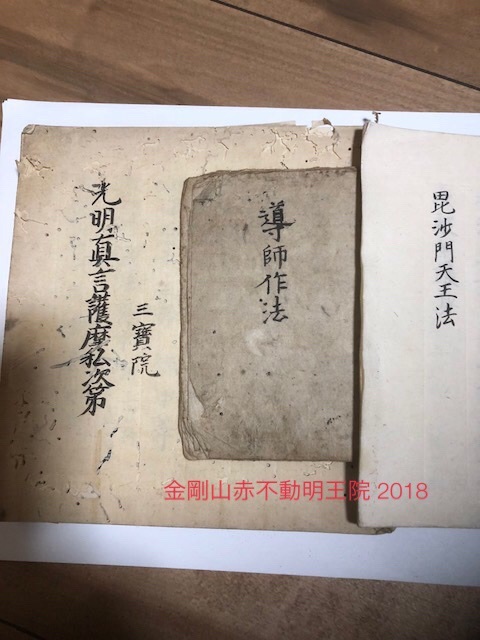 毘沙門天王法
導師作法
三寶院
光明眞言護摩私次第
金剛山赤不動明王院 2018